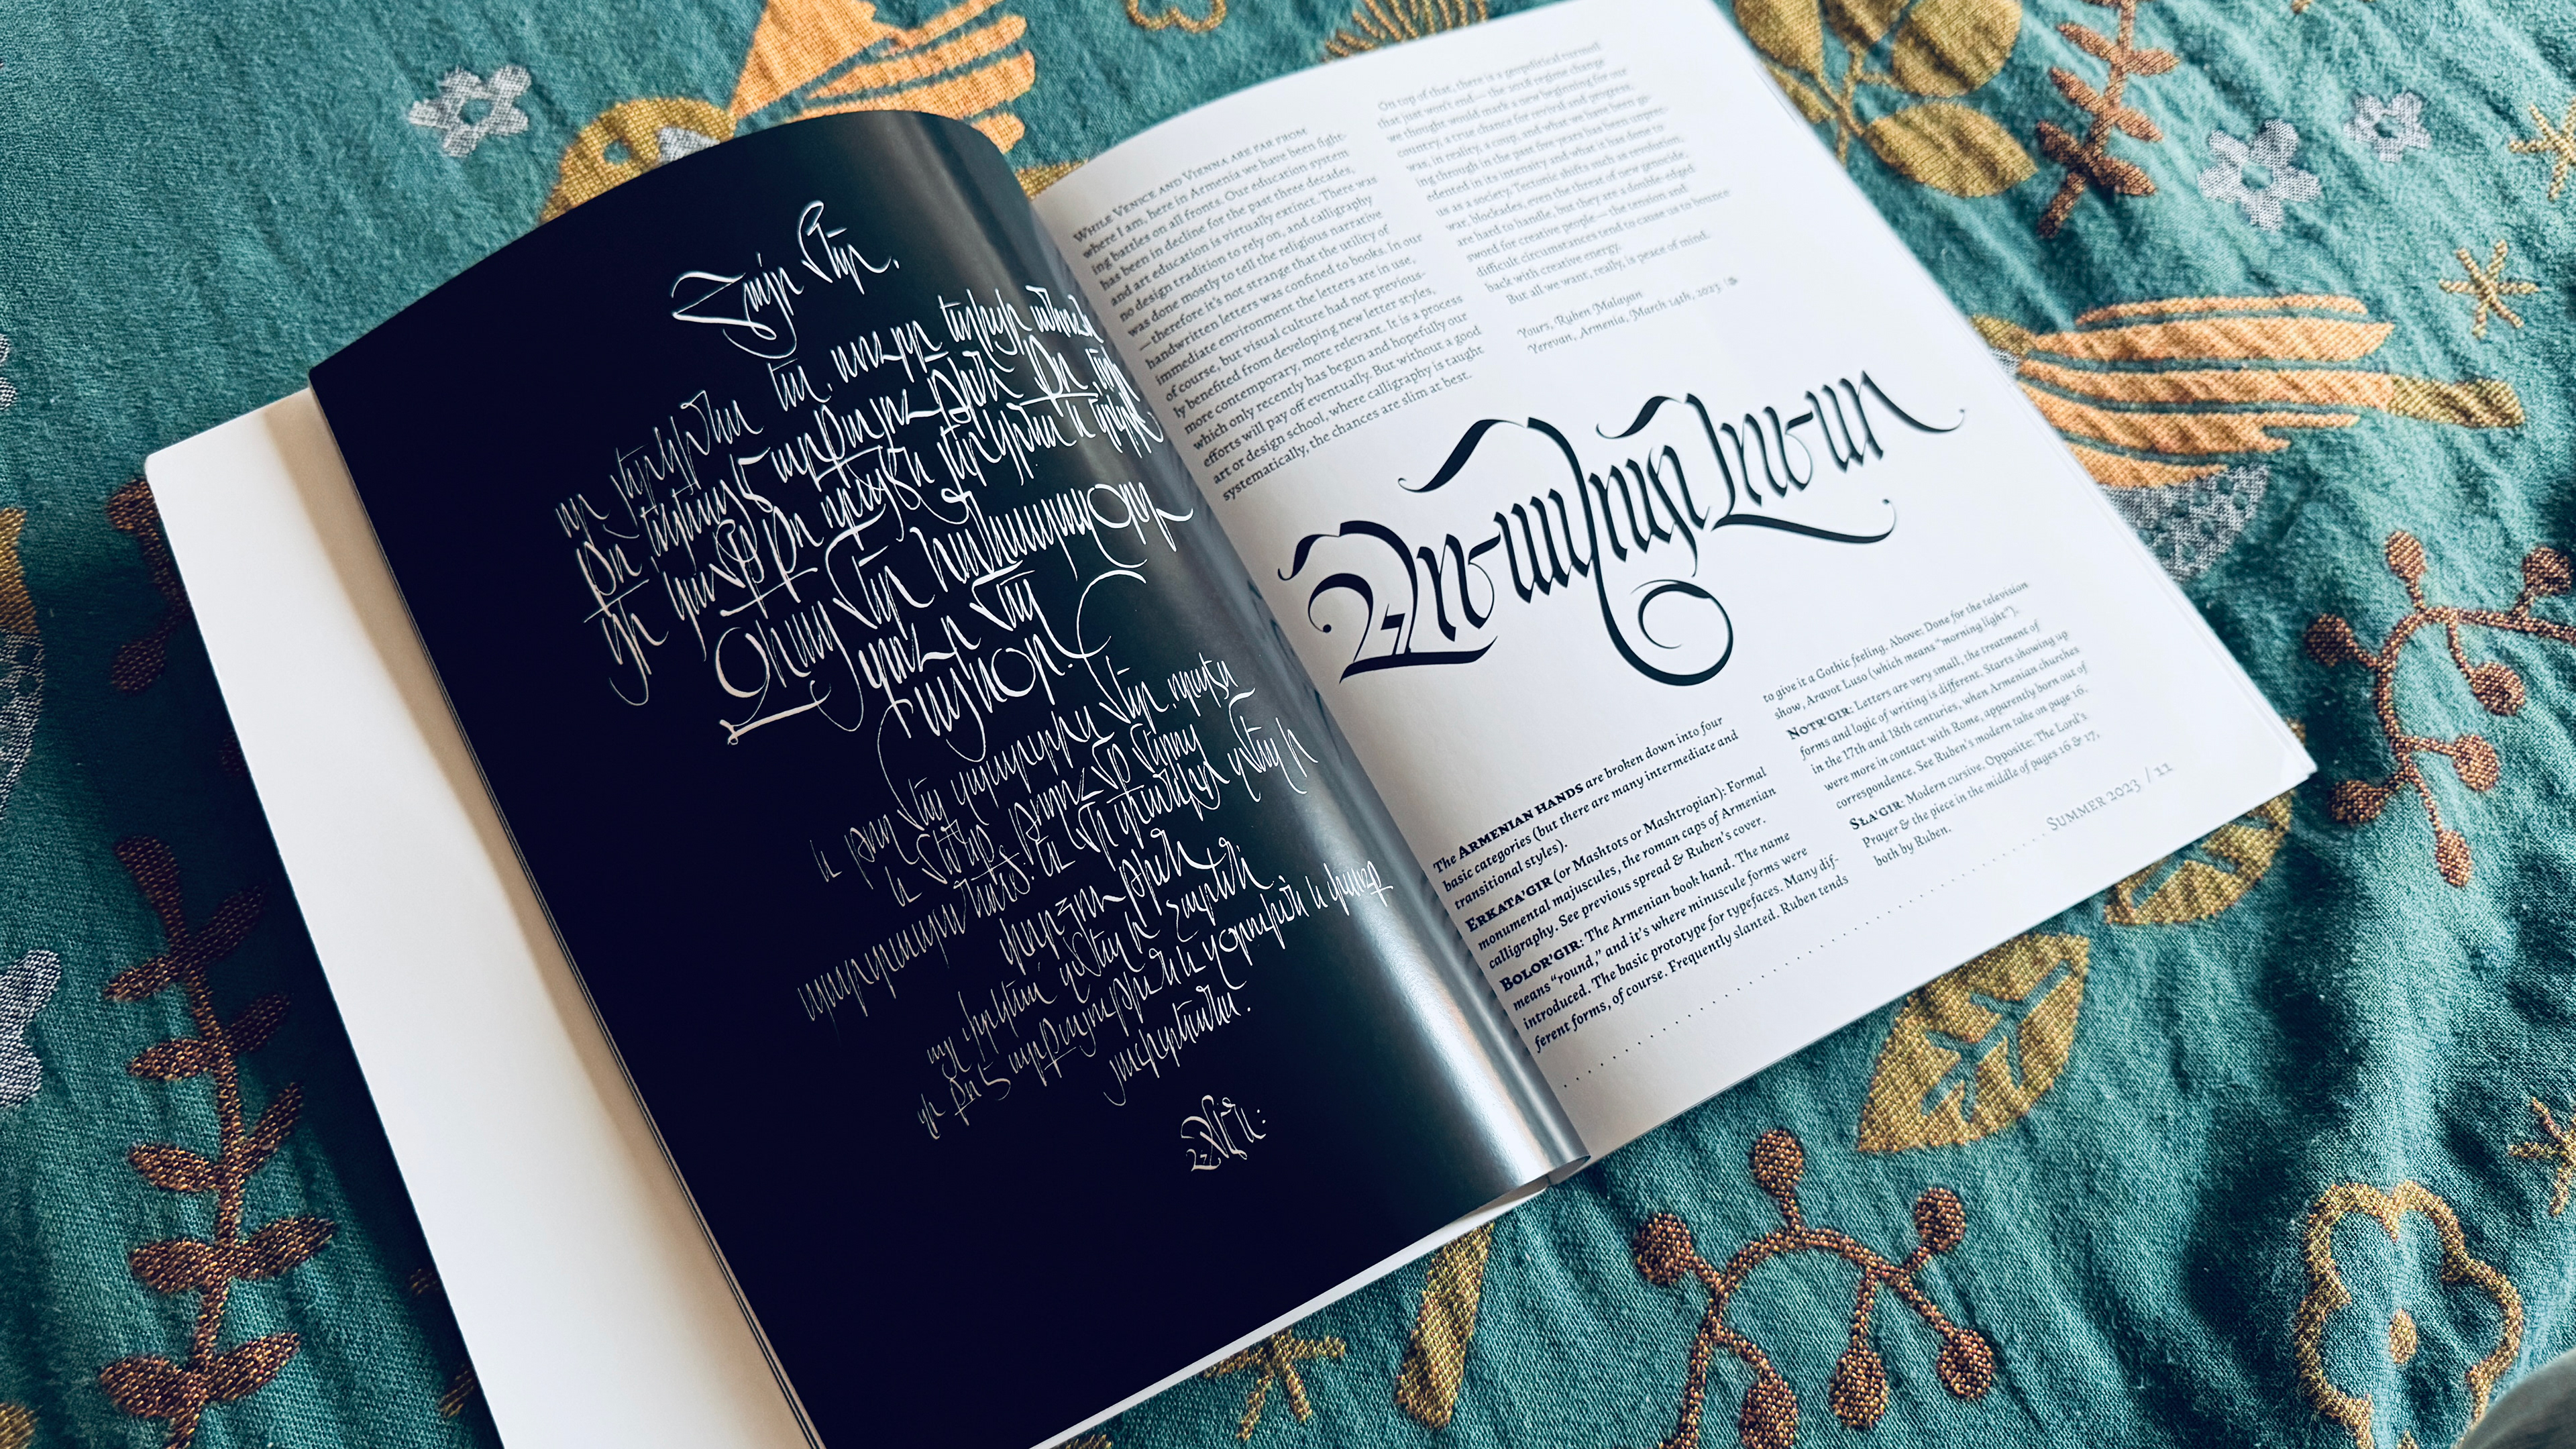 Հայր մեր,
որ յերկինս ես. սուրբ եղիցի անուն
քո. եկեսցէ արքայութիւն քո. եղի
ցին կամք քո որպէս յերկինս և յերկրի
Զհաց մեր հանապազորդ
տուր մեզ
այսօր.
և թող մեզ զպարտիս մեր. որպէս
և մեք թողումք մերոց
պարտապանաց. և մի տանիր զմեզ ի
փորձութիւն
այլ փրկեա զմեզ ի չարէ.
զի քո է արքայութիւն և զօրութիւն և փառք
յաւիտեանս.
Ամէն:
WHILE VENICE AND VIENNA ARE FAR FROM
where I am, here in Armenia we have been fight-
ing battles on all fronts. Our education system
has been in decline for the past three decades,
and art education is virtually extinct. There was
no design tradition to rely on, and calligraphy
was done mostly to tell the religious narrative
—therefore it's not strange that the utility of
handwritten letters was confined to books. In our
immediate environment the letters are in use,
of course, but visual culture had not previous-
ly benefited from developing new letter styles,
more contemporary, more relevant. It is a process
which only recently has begun and hopefully our
efforts will pay off eventually. But without a good
art or design school, where calligraphy is taught
systematically, the chances are slim at best.
On top of that, there is a geopolitical turmoil
that just won't end— the 2018 regime change
we thought would mark a new beginning for our
country, a true chance for revival and progress,
was, in reality, a coup, and what we have been go-
ing through in the past five years has been unprec-
edented in its intensity and what it has done to
us as a society. Tectonic shifts such as revolution,
war, blockades, even the threat of new genocide,
are hard to handle, but they are a double-edged
sword for creative people— the tension and
difficult circumstances tend to cause us to bounce
back with creative energy.
But all we want, really, is peace of mind.
Yours, Ruben Malayan
Yerevan, Armenia, March 14th, 2023
The ARMENIAN HANDS are broken down into four
basic categories (but there are many intermediate and
transitional styles).
ERKATA'GIR (or Mashtots or Mashtropian): Formal
monumental majuscules, the roman caps of Armenian
calligraphy. See previous spread & Ruben's cover.
BOLOR'GIR: The Armenian book hand. The name
means “round,” and it's where minuscule forms were
introduced. The basic prototype for typefaces. Many dif-
ferent forms, of course. Frequently slanted. Ruben tends
to give it a Gothic feeling. Above: Done for the television
show, Aravot Luso (which means “morning light”).
NOTR'GIR: Letters are very small, the treatment of
forms and logic of writing is different. Starts showing up
in the 17th and 18th centuries, when Armenian churches
were more in contact with Rome, apparently born out of
correspondence. See Ruben's modern take on page 16.
SLA'GIR: Modern cursive. Opposite: The Lord's
Prayer & the piece in the middle of pages 16 & 17,
both by Ruben.
SUMMER 2023 / 11